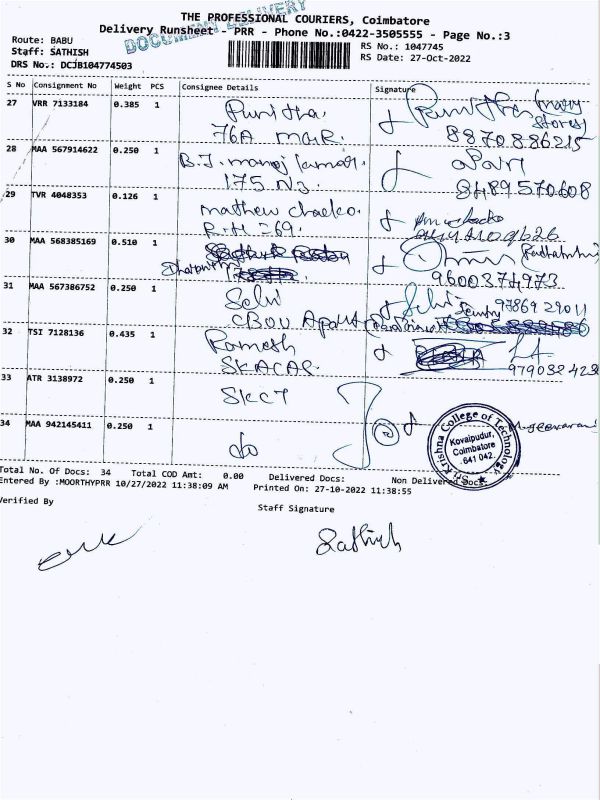 THE PROFESSIONAL COURIERS, Coimbatore
DOCUMENT DELIVERY
Delivery Runsheet - PRR - Phone No.:0422-3505555 - Page No.:3
Route: BABU
RS No.: 1047745
Staff: SATHISH
RS Date: 27-Oct-2022
DRS No.: DCJB104774503
S No Consignment No Weight PCS Consignee Details Signature
27 VRR 7133184 0.385 1 Punitha.
76A
8870886215
28 MAA 567914622 0.250 1 B.J. manoj kumar.
175 N3.
8489570608
29 TVR 4048353 0.126 1 mathew chacko.
30 MAA 568385169 0.510 1
9600374973
31 MAA 567386752 0.250 1 Selvi Selvi 9786929011
32 TSI 7128136 0.435 1 Ramesh
33 ATR 3138972 0.250 1 SKCT
34 MAA 942145411 0.250 1 do
Sri Krishna College of Technology
Kovaipudur,
Coimbatore
641 042.
Total No. Of Docs: 34 Total COD Amt: 0.00 Delivered Docs: Non Delivered Docs:
Entered By :MOORTHYPRR 10/27/2022 11:38:09 AM Printed On: 27-10-2022 11:38:55
Verified By
Staff Signature
Sathish